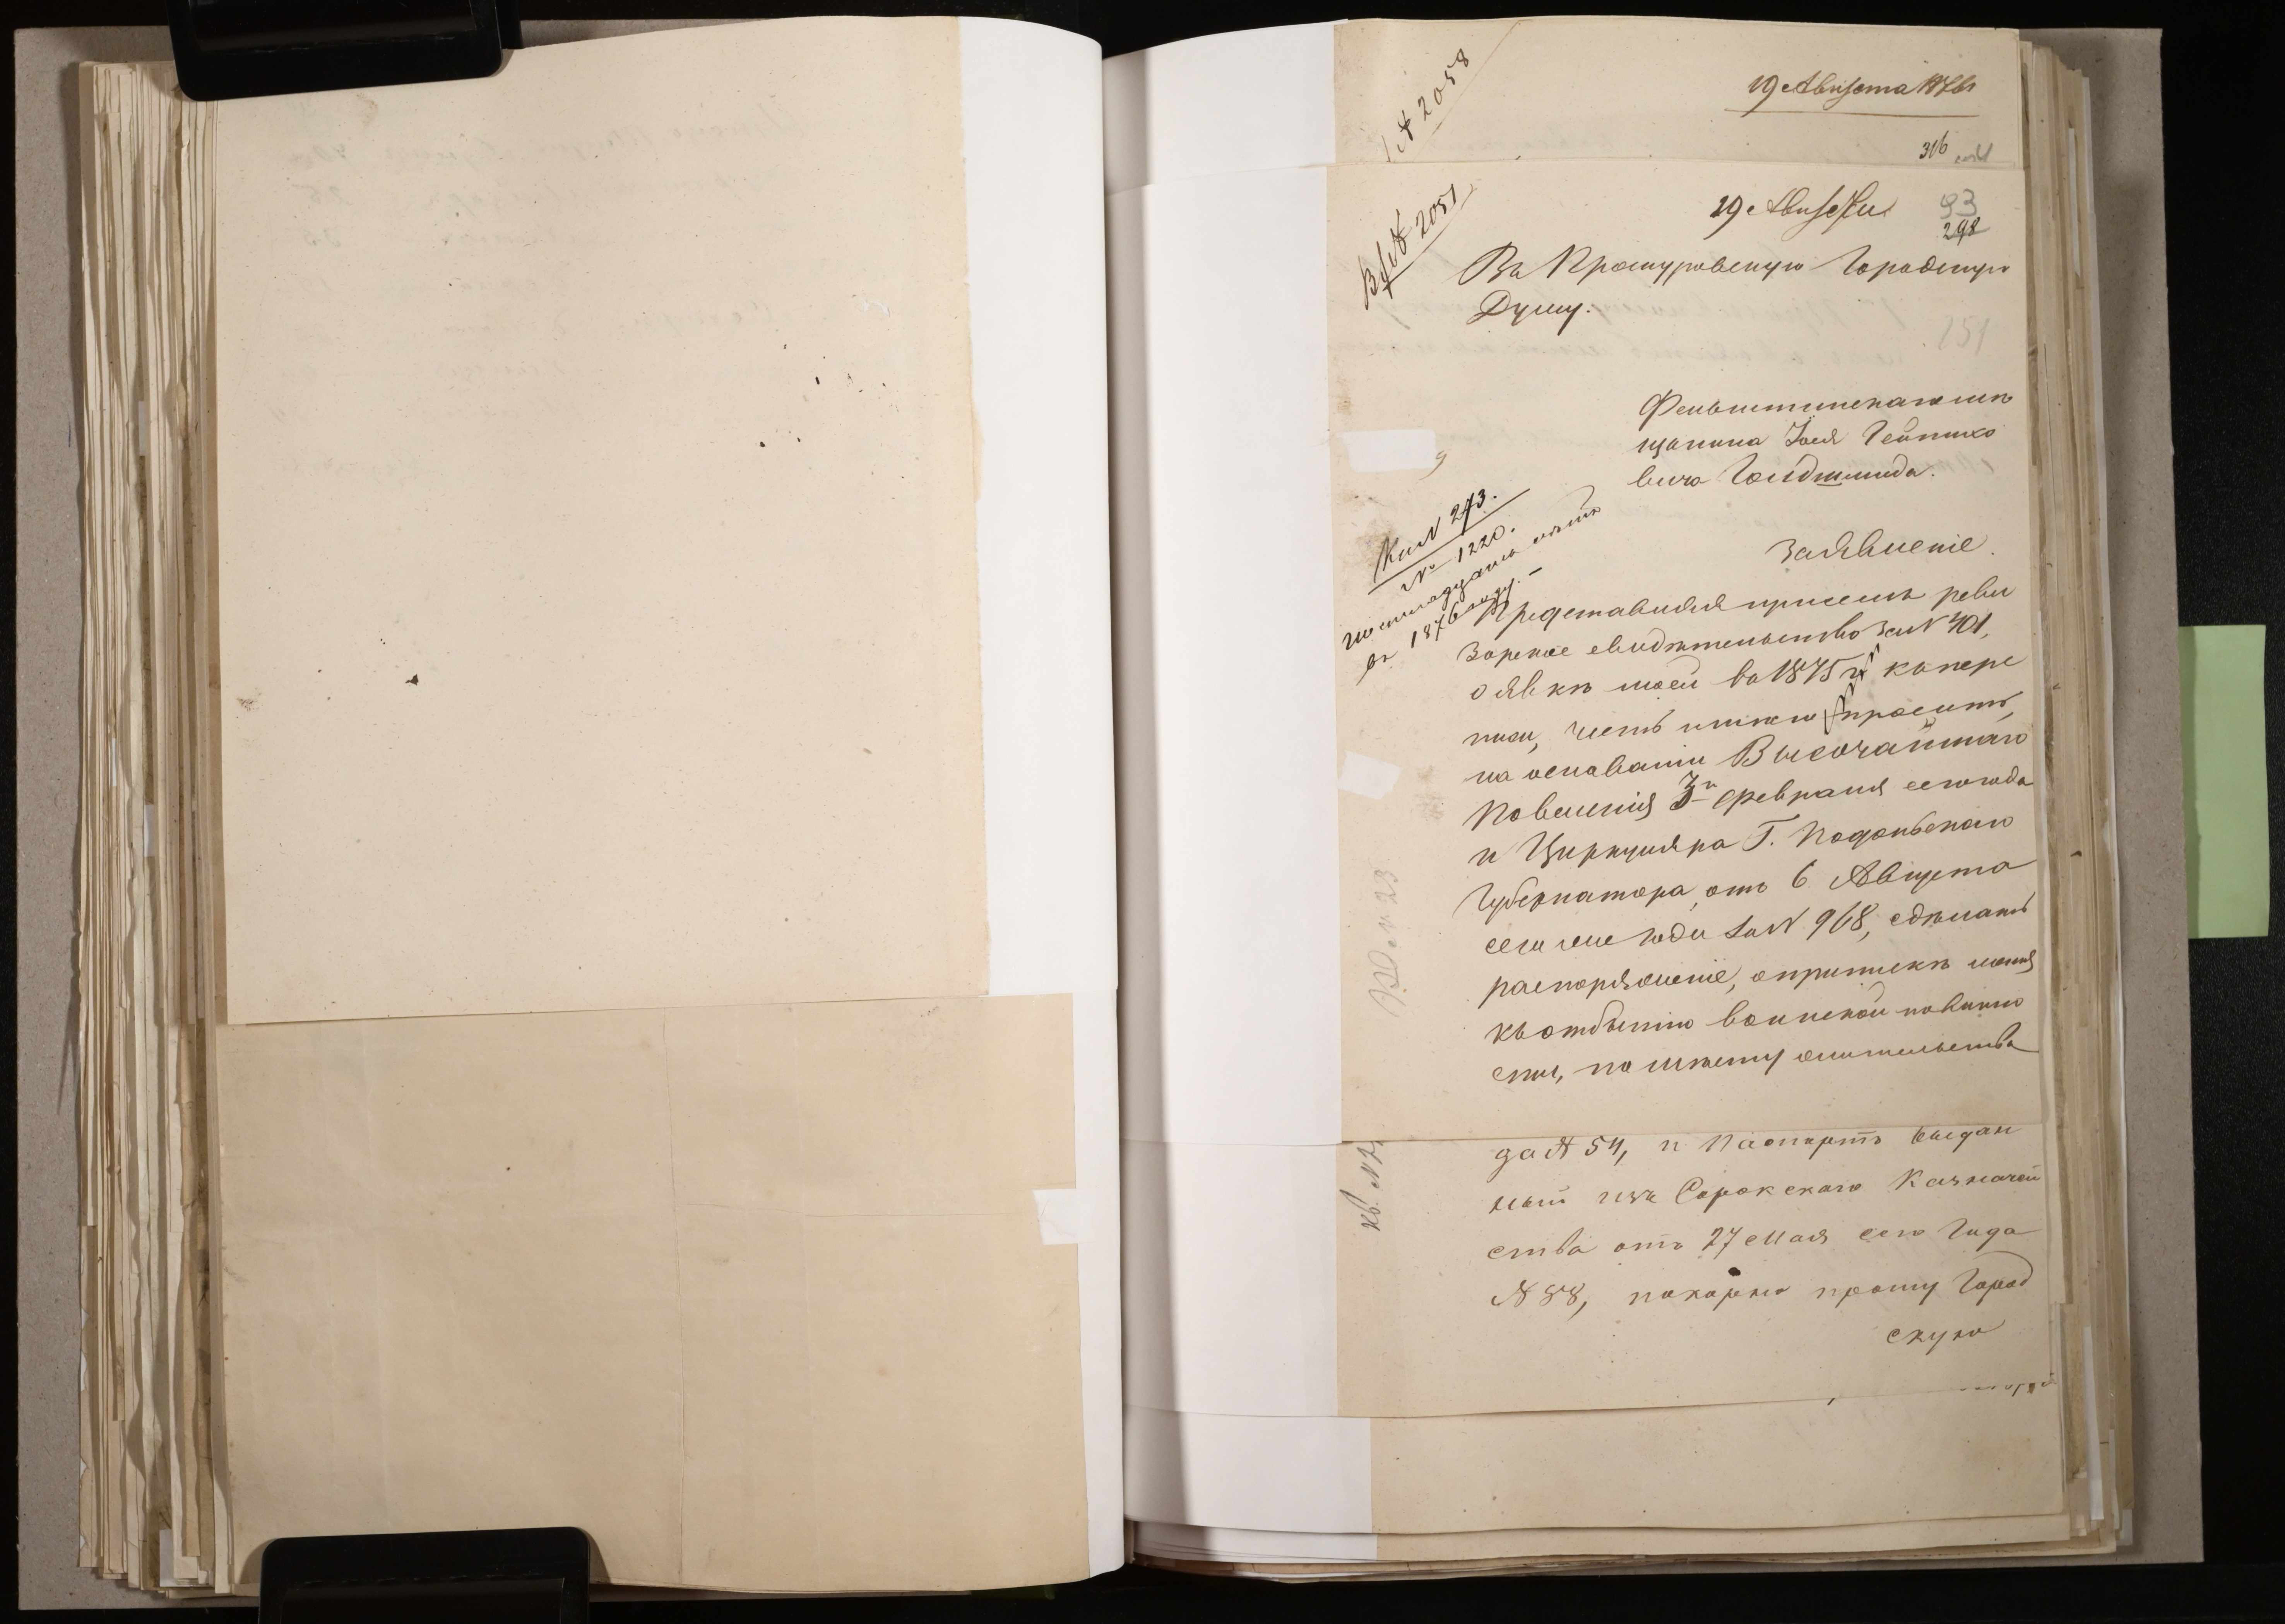 № 2058
19 Августа 1876 г
316
19 Августа
93
298
В/№ 2051
Въ Проскуровскую Городскую
Думу.
151
Фельштинскаго мѣ
щанина Іося Гейнихо
вича Гольдшмида.
Заявленіе.
К № 273.
№ 1220.
въ 1876 году. —
Представляя присемъ реви
зорское свидѣтельство за № 401,
о явкѣ моей въ 1875 г. къ пере
писи, честь имѣю просить,
на основаніи Высочайшаго
Повелѣнія 3го Февраля сего года
и Циркуляра Г. Подольскаго
Губернатора, отъ 6 Августа
сего же года за № 968, сдѣлать
распоряженіе, о припискѣ меня
къ отбытію воинской повинно
сти, по мѣсту жительства
№ 23
да № 54, и Паспортъ выдан
ный изъ Сорокскаго Казначей
ства отъ 27 Мая сего Года
№ 88, покорно прошу Город
скую